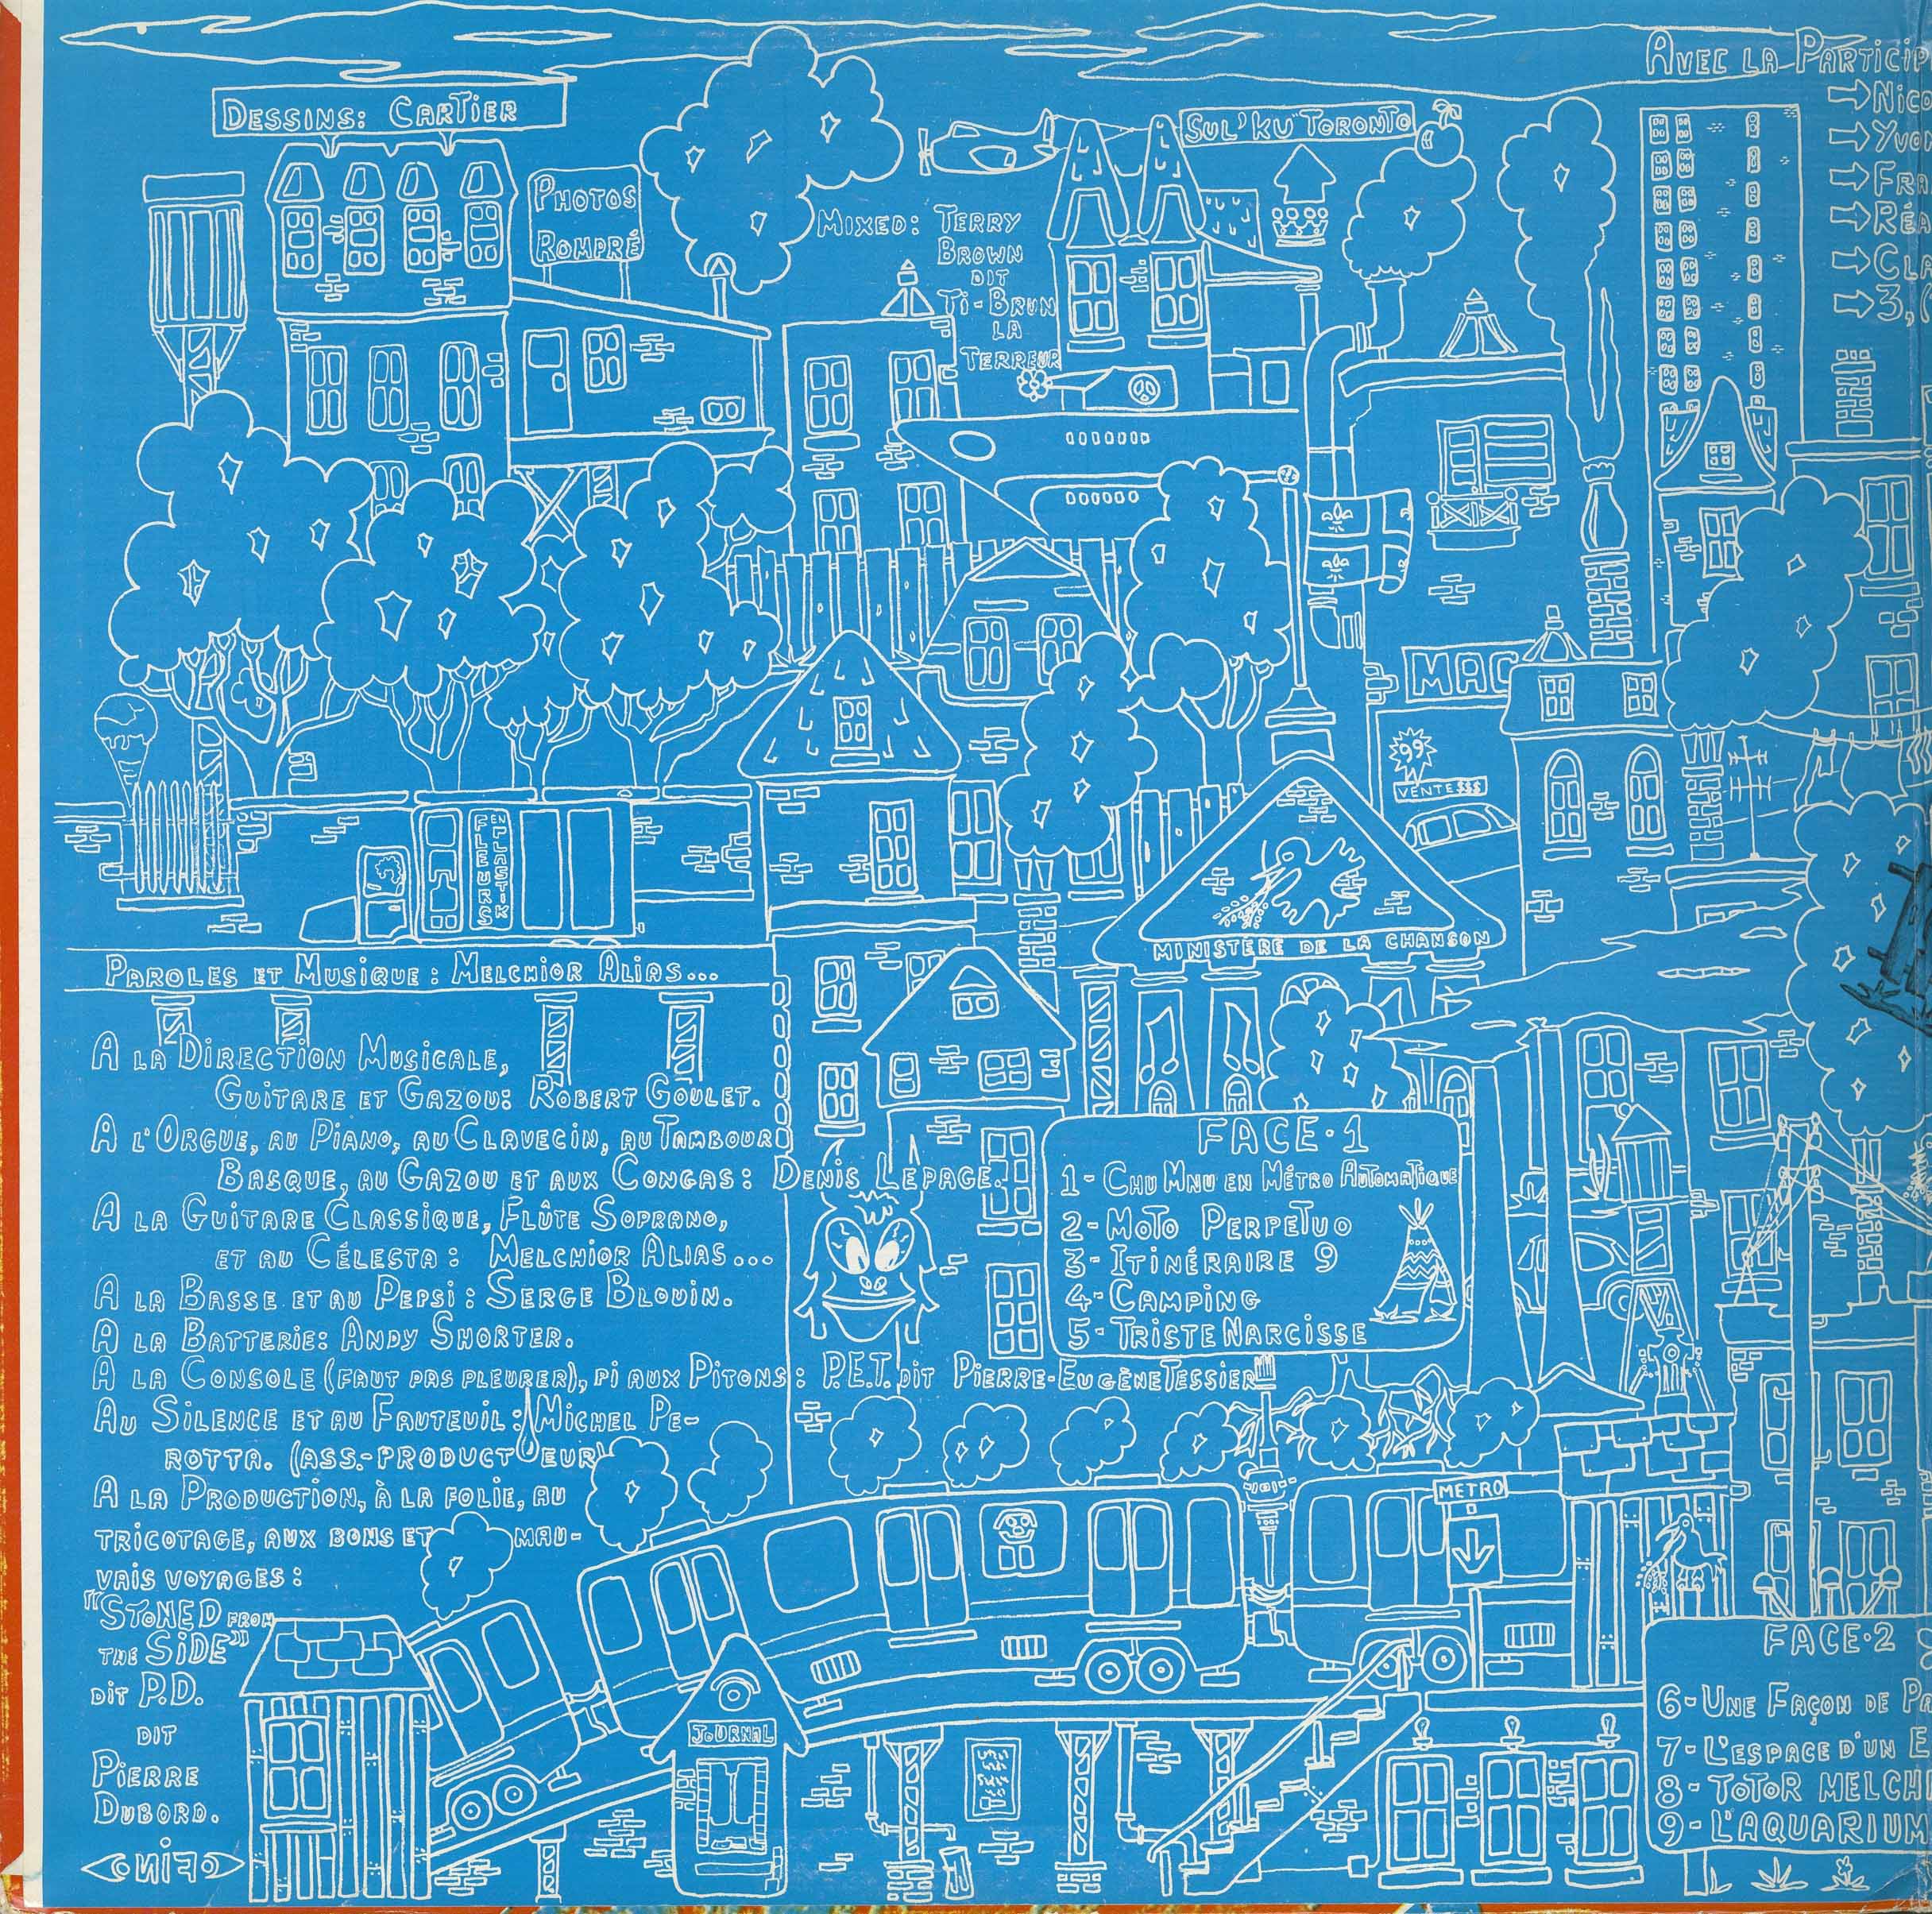 DESSINS: CARTIER
PHOTOS
ROMPRÉ
MIXED: TERRY
BROWN
DIT
TI-BRUN
LA
TERREUR
SUL' KU TORONTO
AVEC LA PARTICIP
NICO
YVO
FRA
RÉA
CLA
3,
MAG
99
VENTE $$$
FLEURS
EN PLASTIK
MINISTÈRE DE LA CHANSON
PAROLES ET MUSIQUE: MELCHIOR ALIAS...
A LA DIRECTION MUSICALE,
GUITARE ET GAZOU: ROBERT GOULET.
A L'ORGUE, AU PIANO, AU CLAVECIN, AU TAMBOUR
BASQUE, AU GAZOU ET AUX CONGAS: DENIS LEPAGE.
A LA GUITARE CLASSIQUE, FLÛTE SOPRANO,
ET AU CÉLESTA: MELCHIOR ALIAS...
A LA BASSE ET AU PEPSI: SERGE BLOUIN.
A LA BATTERIE: ANDY SHORTER.
A LA CONSOLE (FAUT PAS PLEURER), PI AUX PITONS: P.E.T. DIT PIERRE-EUGÈNE TESSIER
AU SILENCE ET AU FAUTEUIL: MICHEL PE-
ROTTA. (ASS.-PRODUCTEUR)
A LA PRODUCTION, À LA FOLIE, AU
TRICOTAGE, AUX BONS ET MAU-
VAIS VOYAGES:
"STONED FROM
THE SIDE"
DIT P.D.
DIT
PIERRE
DUBORD.
FIN
FACE·1
1- CHU MNU EN MÉTRO AUTOMATIQUE
2- MOTO PERPETUO
3- ITINÉRAIRE 9
4- CAMPING
5- TRISTE NARCISSE
METRO
JOURNAL
FACE·2
6- UNE FAÇON DE PA
7- L'ESPACE D'UN E
8- TOTOR MELCH
9- L'AQUARIUM